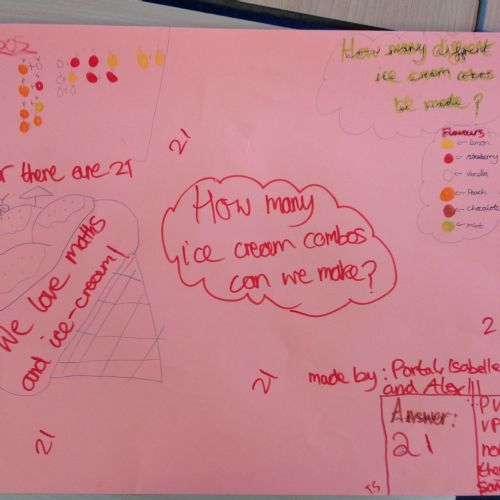 How many different
ice cream combos
be made?
Flavours
lemon
raspberry
vanilla
Peach
chocolate
mint
there are 21
21
How many
ice cream combos
can we make?
We love maths
and ice-cream!
21
21
2
made by: Portal, Isabelle
and Alex!!!
Answer:
21